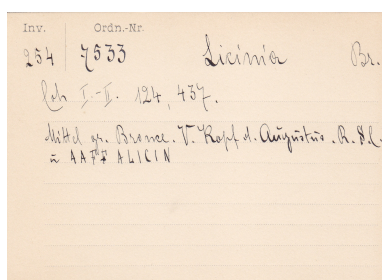 Inv. Ordn.-Nr.
254 7533 Licinia Br.
Coh I.-II. 124, 437.
Mittel gr. Bronce. V. Kopf d. Augustus. R. S.C.
u AAFF ALICIN